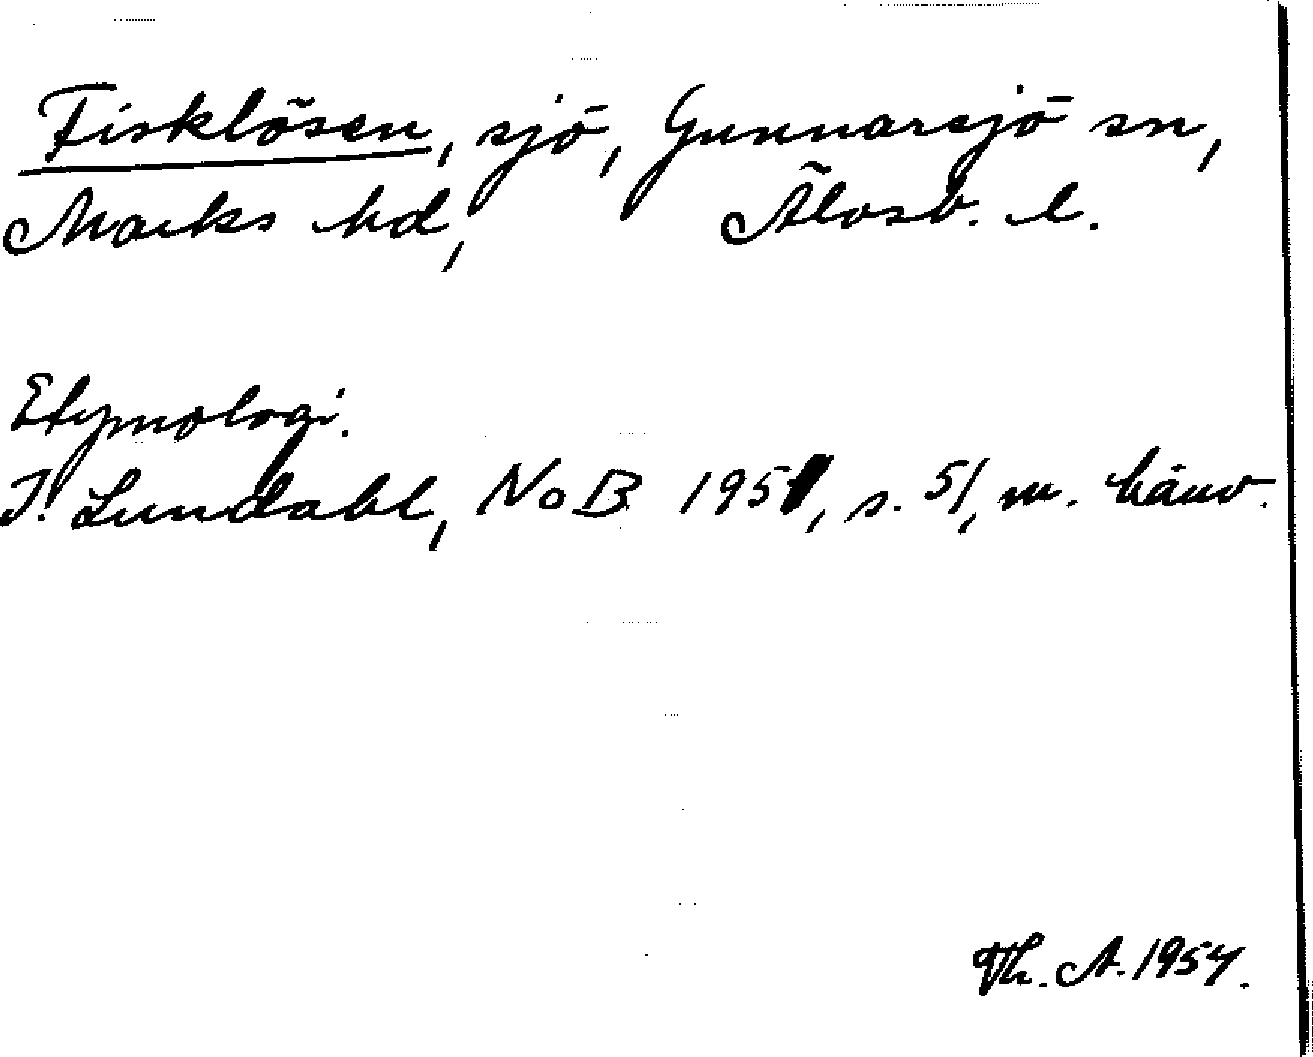 Fisklösen, sjö, Gunnarsjö sn,
Marks hd, Älvsb. l.
Etymologi.
I. Lundahl, NoB 1951, s. 51, m. hänv.
Th. A. 1954.